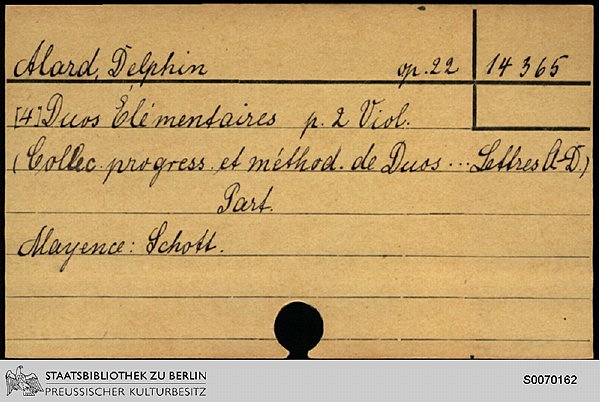 Alard, Delphin op. 22 14 365
[4] Duos Élémentaires p. 2 Viol.
(Collec. progress. et méthod. de Duos ... Lettres A-D.)
Part.
Mayence: Schott.
STAATSBIBLIOTHEK ZU BERLIN
PREUSSISCHER KULTURBESITZ
S0070162